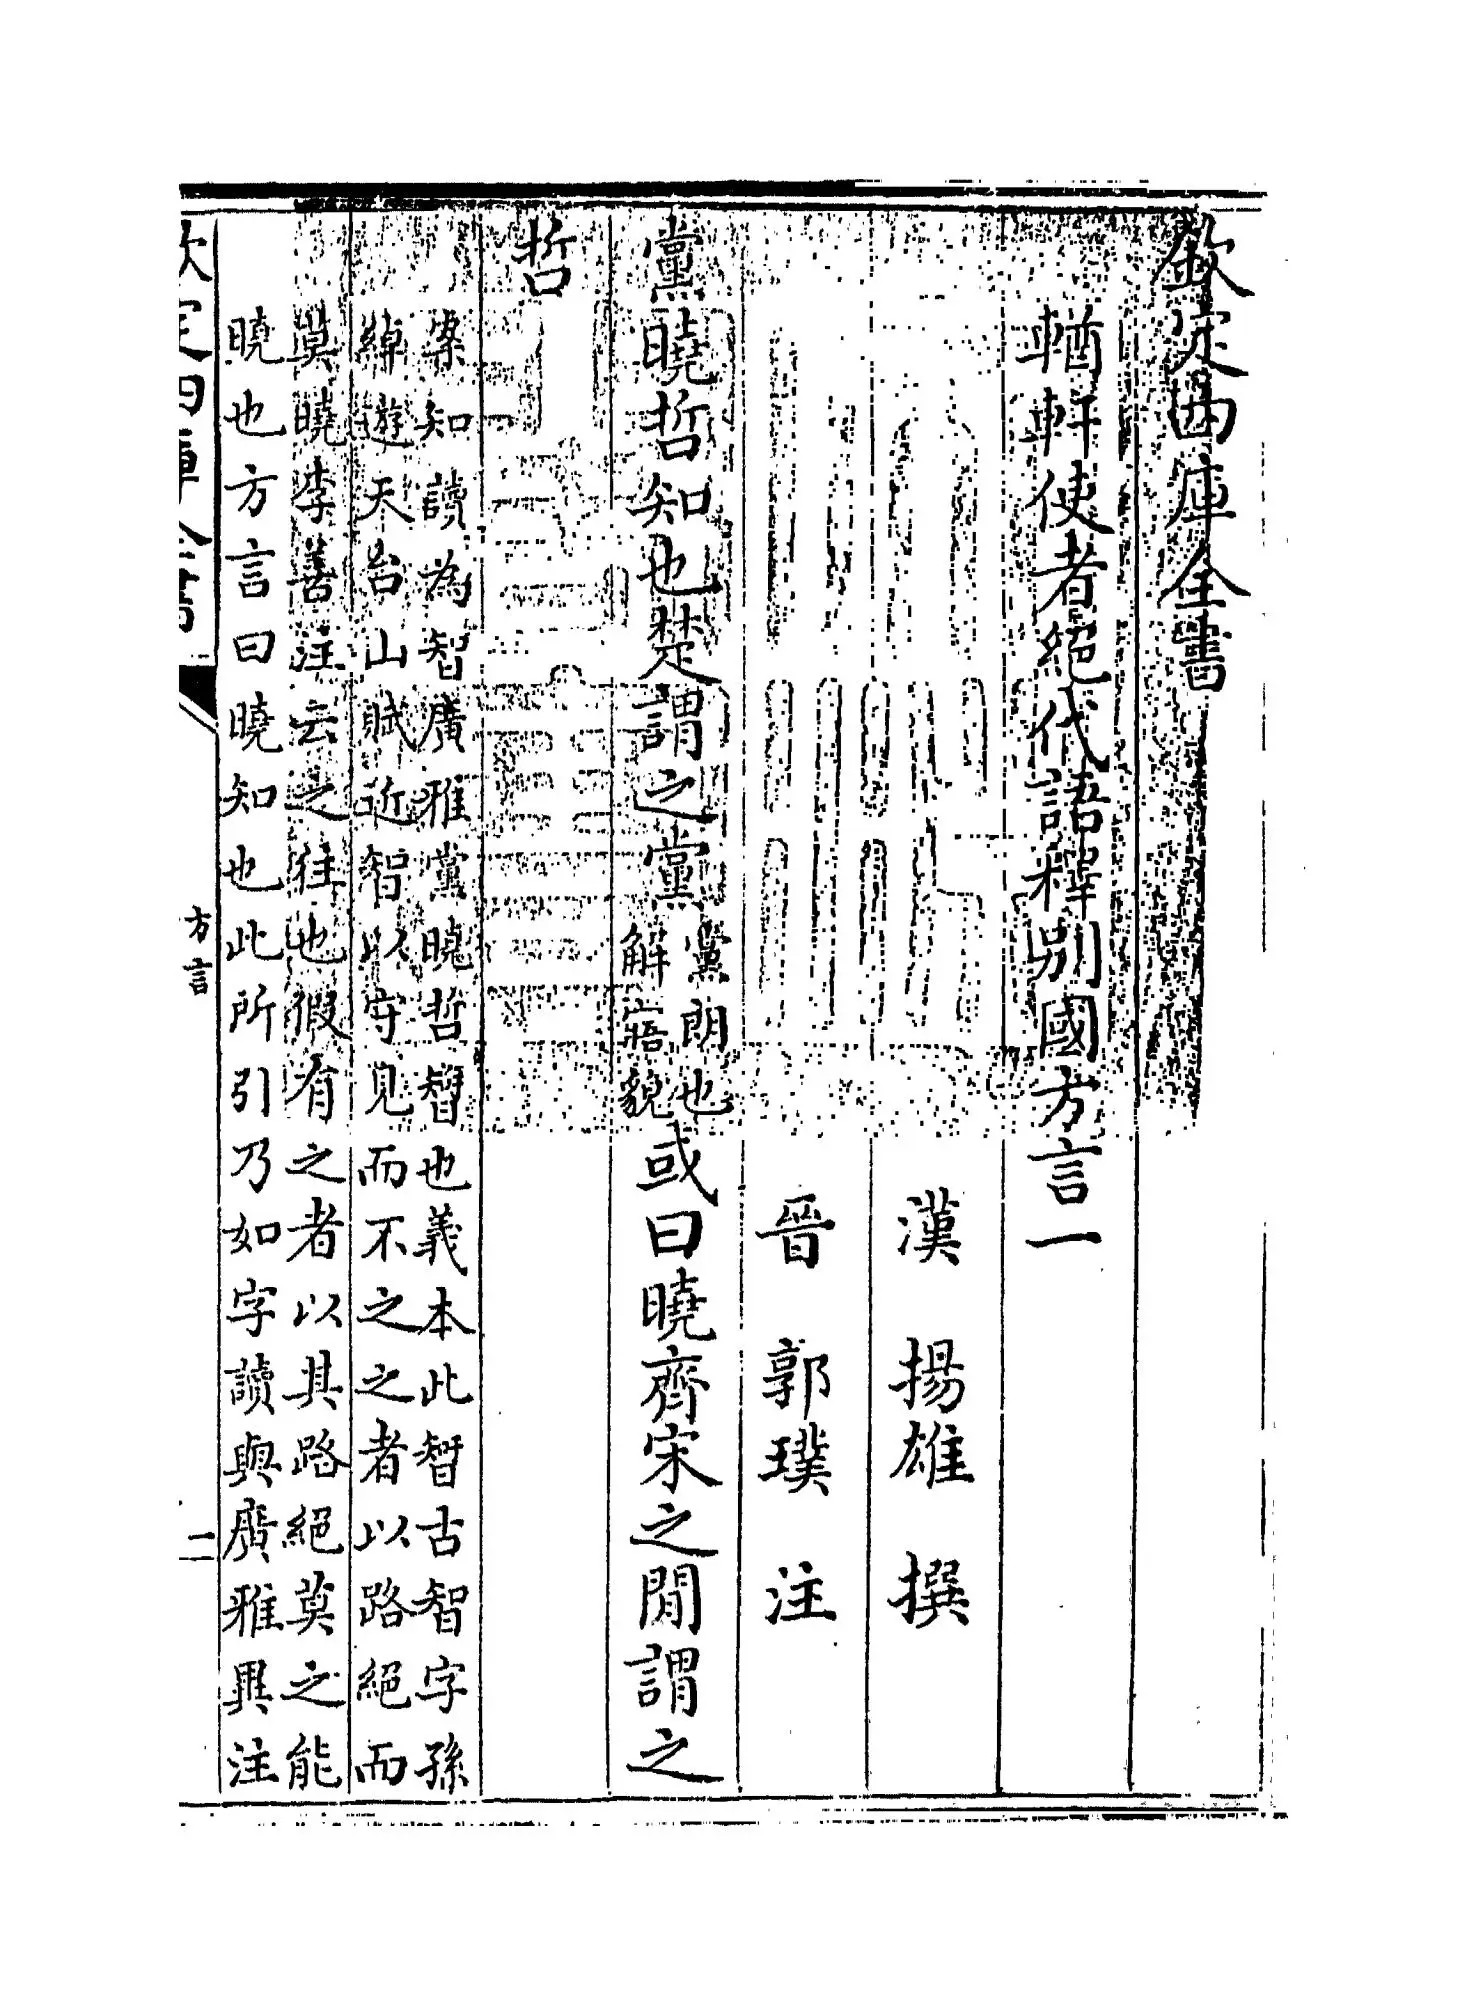 欽定四庫全書
輶軒使者絕代語釋別國方言一
漢 揚雄 撰
晉 郭璞 注
黨曉哲知也楚謂之黨黨朗也解寤貌或曰曉齊宋之間謂之
哲
案知讀為智廣雅黨曉哲𣉻也義本此𣉻古智字孫
綽遊天台山賦近智以守見而不之之者以路絕而
莫曉李善注云之往也假有之者以其路絕莫之能
曉也方言曰曉知也此所引乃如字讀與廣雅異注
欽定四庫全書
方言
二